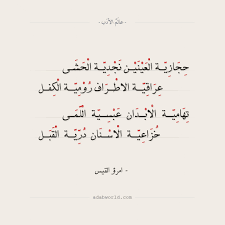 - عالم الأدب -
حِجَازِيّة العَيْنَيْن نَجْدِيّة الحَشَى
عِرَاقِيّة الاطْرَاف رُوْمِيّة الكفل
تِهَامِيّة الابْدان عَبْسِيّة اللّمَى
خُزَاعِيّة الاسْنان دُرِّيّة القبَل
- امرؤ القيس
adabworld.com